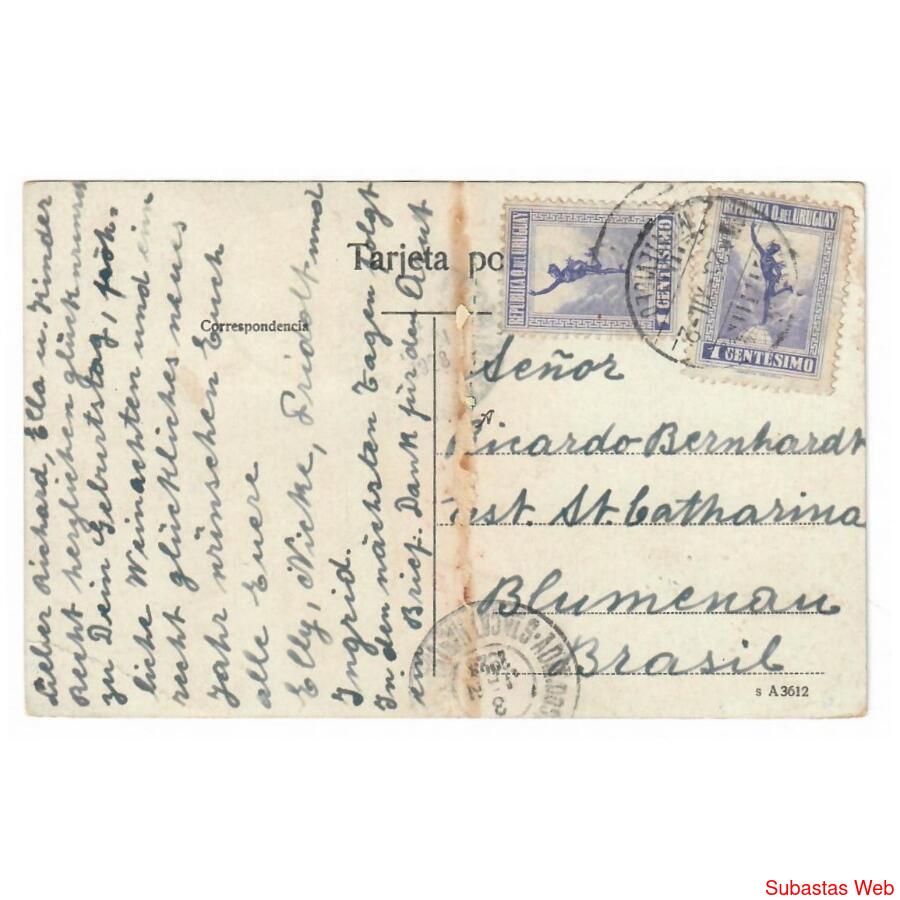 Tarjeta po
Correspondencia
Lieber Richard, Ella u. Kinder
Recht herzlichen glückwunsch
zu Dein Geburtstag, fröh-
liche Weinachten und ein
recht glückliches neues
Jahr wünschen Euch
alle Euere
Elly, Nicke, Fridolf und
Ingrid.
In den nächsten Tagen folgt
ein Brief. Dank für den
REPUBLICA O. DEL URUGUAY
1 CENTESIMO
REPUBLICA O. DEL URUGUAY
1 CENTESIMO
MONTEVIDEO
Señor
Ricardo Bernhardt
Est. St. Catharina
Blumenau
Brasil
s A 3612
Subastas Web